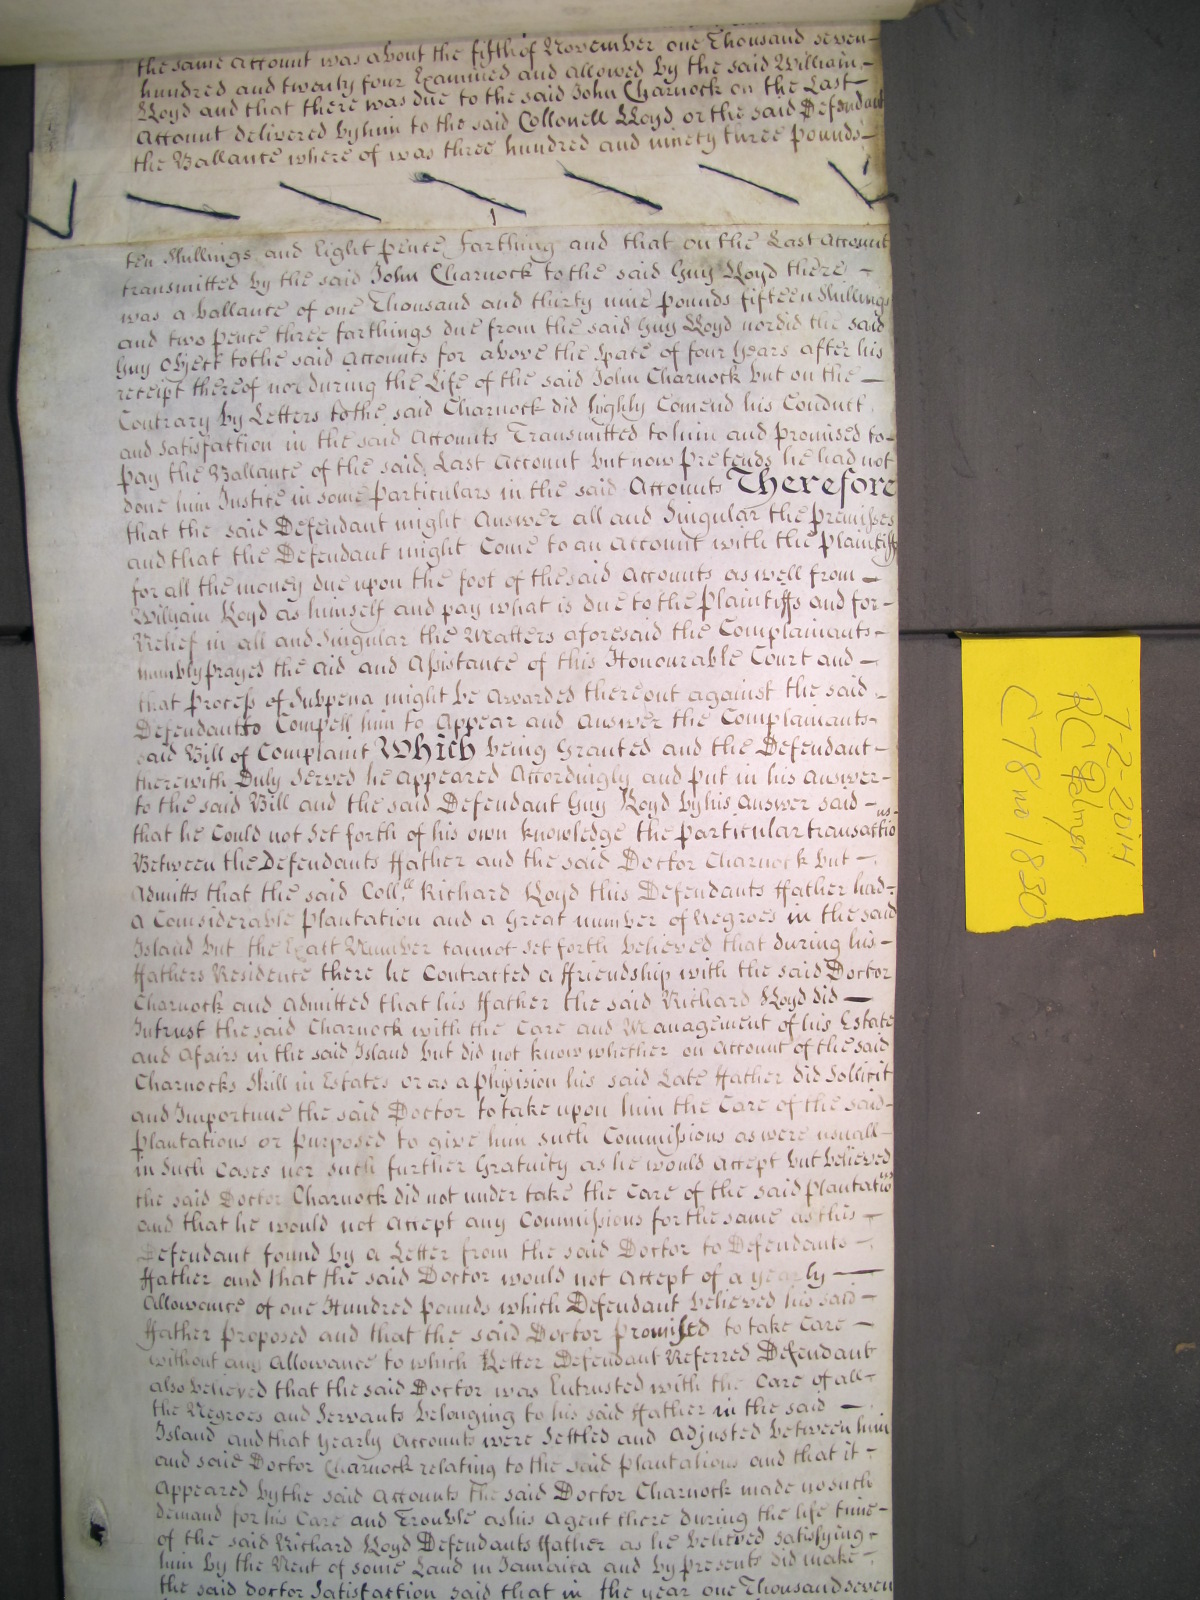 the same Account was about the fifth of November one Thousand seven-
hundred and twenty four Examined and allowed by the said William -
Lloyd and that there was due to the said John Charnock on the Last
Account delivered by him to the said Collonell Lloyd or the said Defendant
the Ballance where of was three hundred and ninety three pounds -
ten Shillings and Eight pence farthing and that on the Last Account
transmitted by the said John Charnock to the said Guy Lloyd there -
was a ballance of one Thousand and thirty nine pounds fifteen Shillings
and two pence three farthings due from the said Guy Lloyd nor did the said
Guy Object to the said Accounts for above the space of four years after his
receipt thereof nor during the Life of the said John Charnock but on the -
Contrary by Letters to the said Charnock did highly Comend his Conduct
and Satisfaction in the said Accounts Transmitted to him and promised to-
pay the Ballance of the said Last Account but now pretends he had not
done him Justice in some particulars in the said Accounts Therefore
that the said Defendant might Answer all and Singular the premisses
and that the Defendant might Come to an Account with the plaintiffs
for all the money due upon the foot of the said Accounts as well from -
William Loyd as himself and pay what is due to the Plaintiffs and for-
Relief in all and Singular the Matters aforesaid the Complainants-
humbly prayed the aid and Assistance of this Honourable Court and -
that process of Subpena might be Awarded thereout against the said -
Defendant to Compell him to Appear and Answer the Complainants-
said Bill of Complaint Which being Granted and the Defendant-
therewith Duly Served he Appeared Accordingly and put in his Answer-
to the said Bill and the said Defendant Guy Loyd by his Answer said -
that he Could not Set forth of his own knowledge the particular transactions
Between the Defendants ffather and the said Doctor Charnock but -
Admitts that the said Coll. Richard Lloyd this Defendants ffather had-
a Considerable plantation and a Great number of Negroes in the said
Island but the Exact Number cannot set forth believed that during his-
ffathers Residence there he Contracted a ffriendship with the said Doctor
Charnock and Admitted that his ffather the said Richard Lloyd did -
Intrust the said Charnock with the Care and Management of his Estate
and Afairs in the said Island but did not know whether on Account of the said
Charnocks Skill in Estates or as a phisision his said Late ffather did Sollicit
and Importune the said Doctor to take upon him the Care of the said-
plantations or purposed to give him such Commissions as were usuall-
in Such Cases nor such further Gratuity as he would Accept but believed
the said Doctor Charnock did not under take the Care of the said plantations
and that he would not Accept any Commissions for the same as this -
Defendant found by a Letter from the said Doctor to Defendants -
ffather and that the said Doctor would not Accept of a yearly -
Allowance of one Hundred pounds which Defendant believed his said -
ffather proposed and that the said Doctor promised to take Care -
without any Allowance to which Letter Defendant Referred Defendant
also believed that the said Doctor was Entrusted with the Care of all-
the Negroes and Servants belonging to his said ffather in the said -
Island and that yearly Accounts were Settled and Adjusted between him
and said Doctor Charnock relating to the said plantations and that it -
Appeared by the said Accounts the said Doctor Charnock made no such
demand for his Care and Trouble as his Agent there during the life time-
of the said Richard Lloyd Defendants ffather as he believed satisfying-
him by the Rent of some Land in Jamaica and by presents did make -
the said doctor Satisfaction said that in the year one Thousand seven
7-2-2014
RC
C78 no 1830